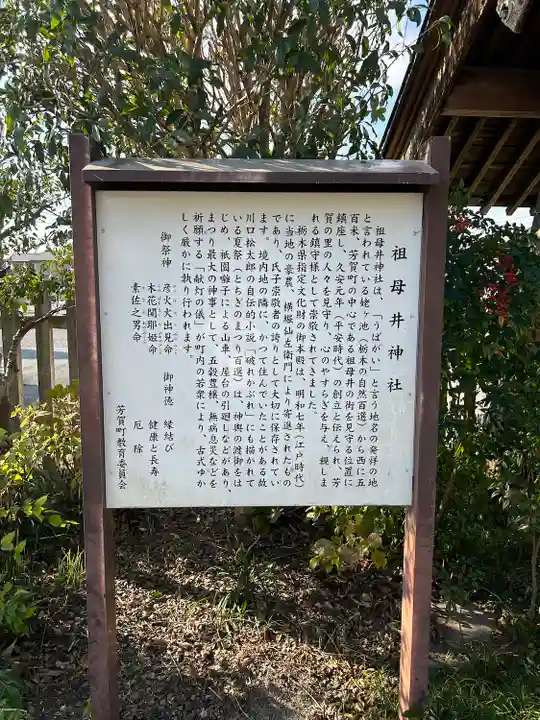 祖母井神社
祖母井神社は、「うばがい」と言う地名の発祥の地
と言われている姥ヶ池（栃木の自然百選）から西に五
百米、芳賀町の中心である祖母井の街を見守る位置に
鎮座し、久安元年（平安時代）の創立と伝えられ、芳
賀の里の人々を見守り、心のやすらぎを与え、親しま
れる鎮守様として崇敬されてきました。
栃木県指定文化財の御本殿は、明和七年（江戸時代）
に当地の豪農、横堀仙左衛門により寄進されたもの
であり、氏子崇敬者の誇りとして大切に保存されてい
ます。境内地の隣に、かつて住んでいたことがある故
川口松太郎の自伝的小説「破れかぶれ」にも描かれて
いる夏祭（とちぎのまつり百選）は、神輿の渡御をは
じめ、祇園囃子による山車、屋台の引廻しなどがあり、
まつり最大の神事として、五穀豊穣、無病息災などを
祈願する「献灯の儀」が町内の若衆により、古式ゆか
しく厳かに執り行われます。
御祭神　彦火火出見命　御神徳　縁結び
木花開耶姫命　健康と長寿
素佐之男命　厄除
芳賀町教育委員会